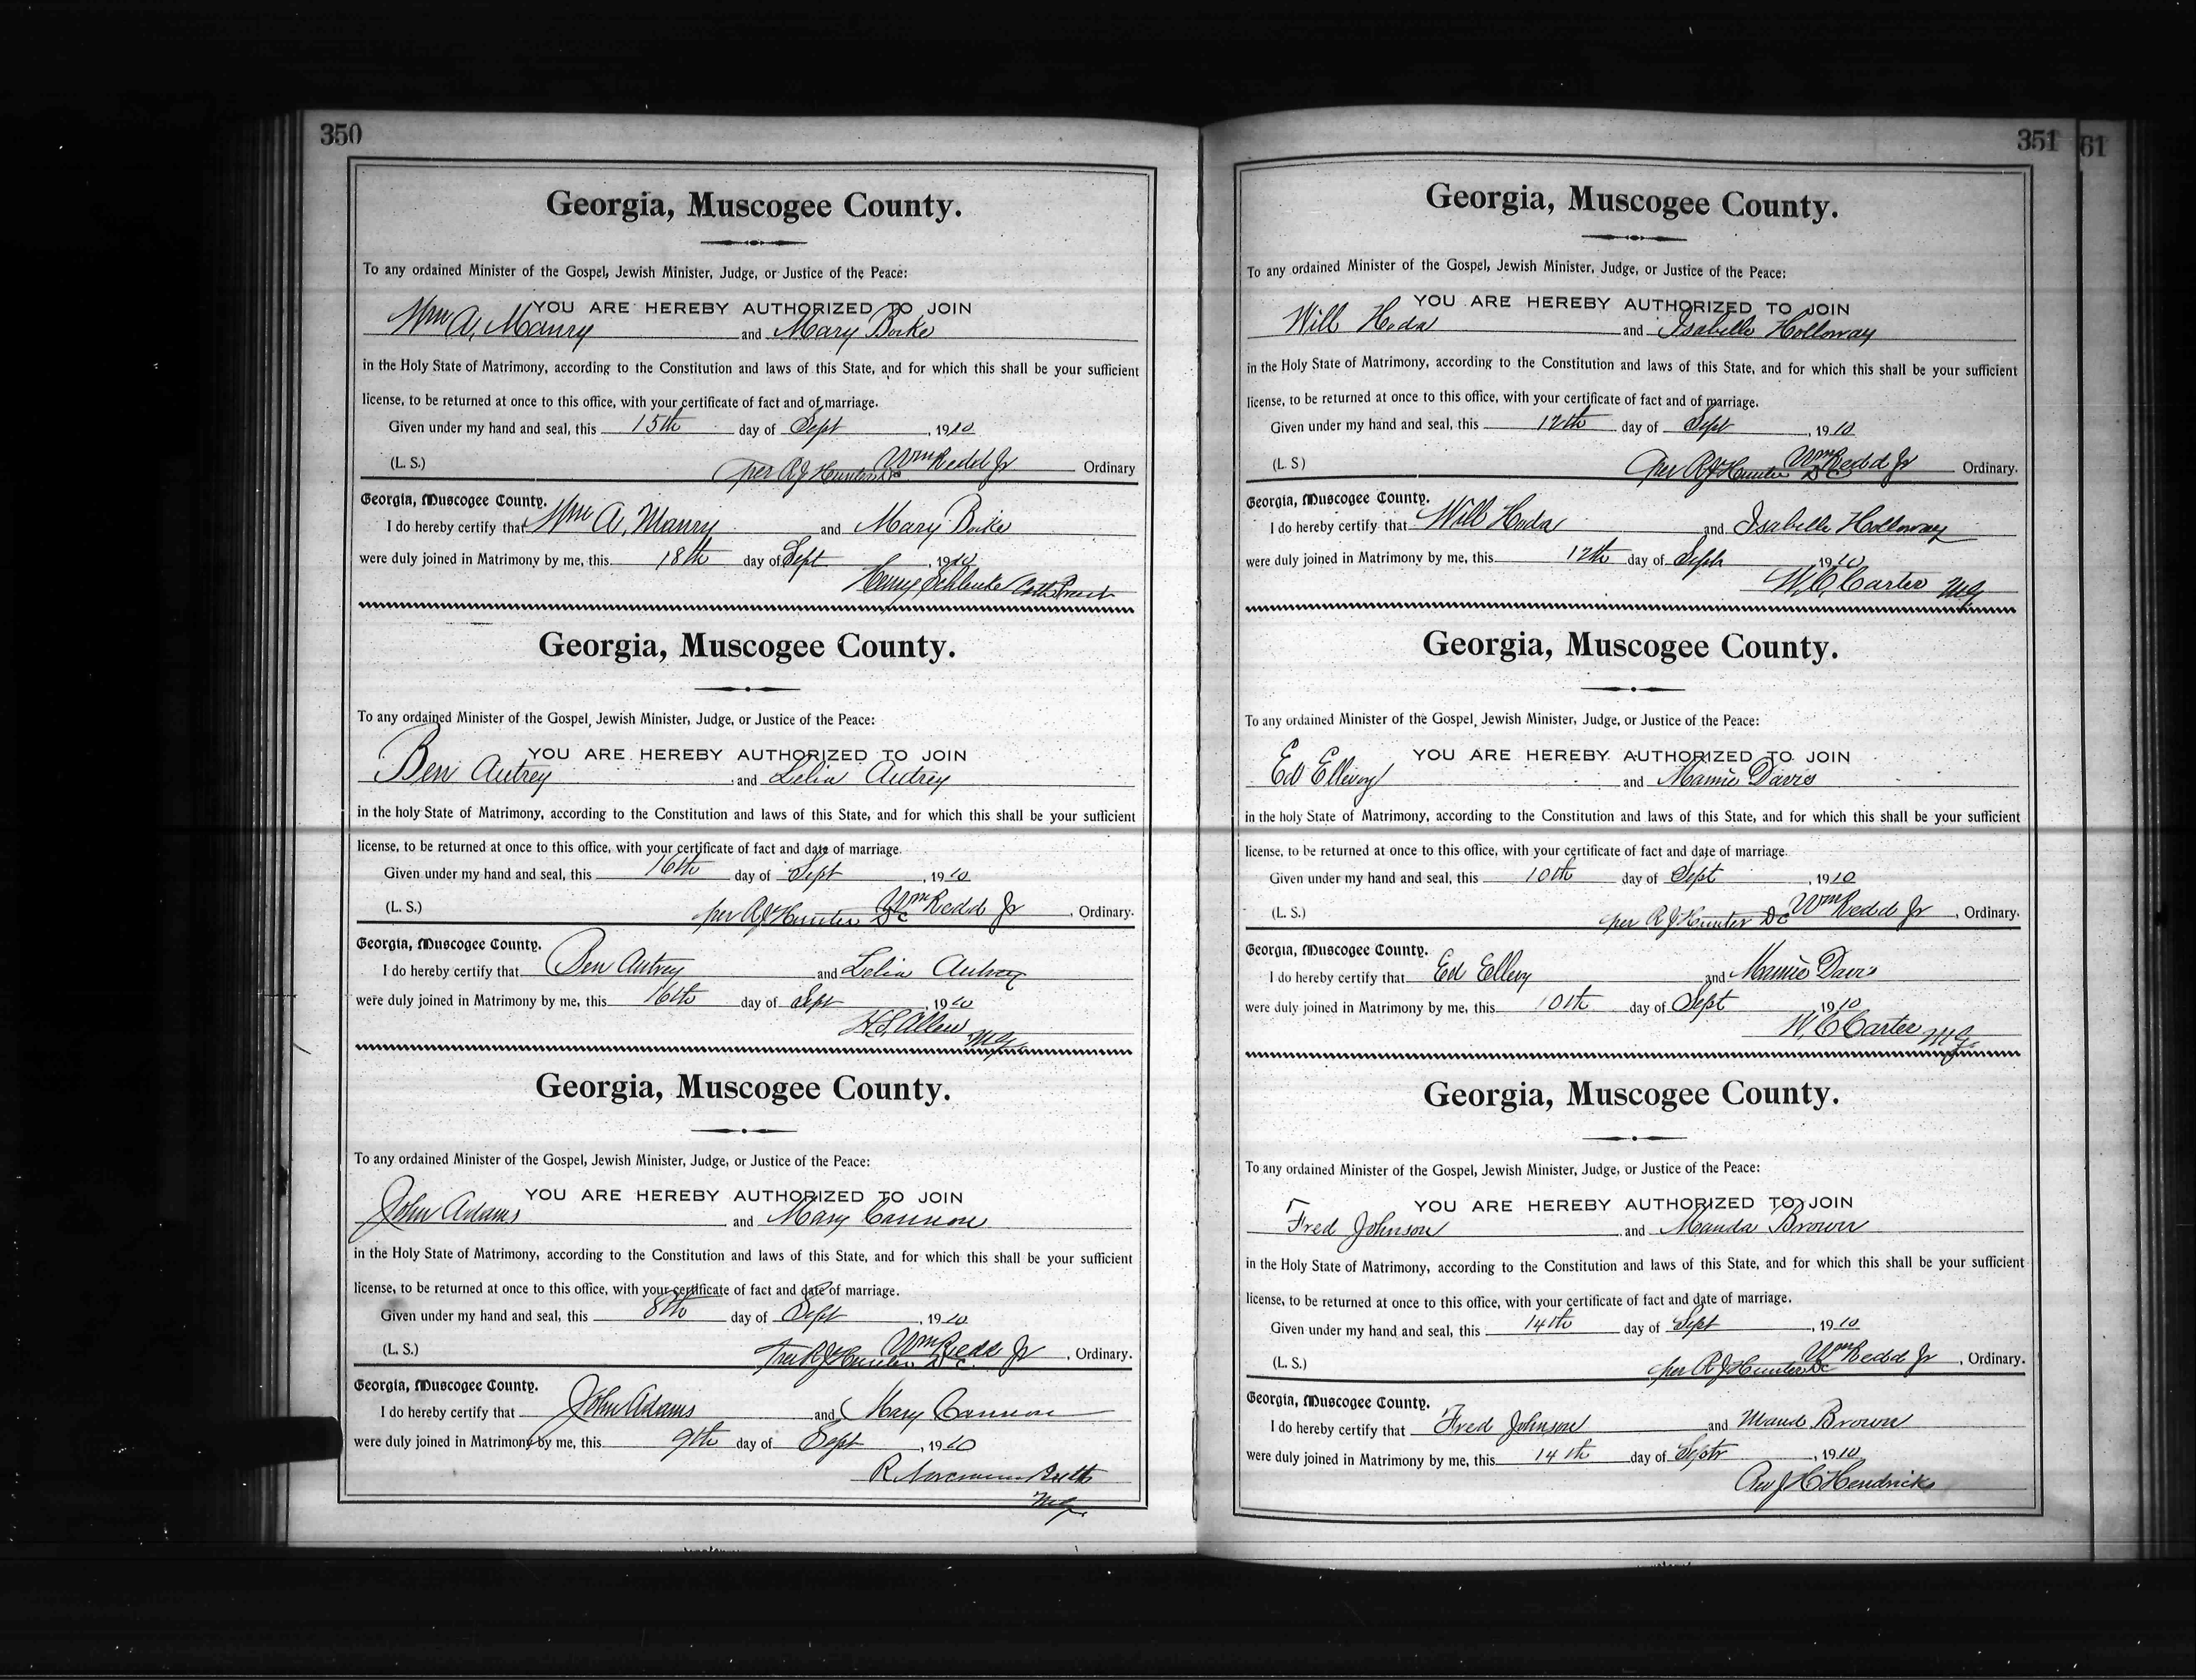 350
Georgia, Muscogee County.
To any ordained Minister of the Gospel, Jewish Minister, Judge, or Justice of the Peace:
YOU ARE HEREBY AUTHORIZED TO JOIN
Wm A, Manry and Mary
in the Holy State of Matrimony, according to the Constitution and laws of this State, and for which this shall be your sufficient
license, to be returned at once to this office, with your certificate of fact and of marriage.
Given under my hand and seal, this 15th day of Sept, 1910
(L. S.) Wm Redd Jr Ordinary
per R J Hunter DC
Georgia, Muscogee County.
I do hereby certify that Wm A, Manry and Mary
were duly joined in Matrimony by me, this 18th day of Sept, 1910
Henry
Georgia, Muscogee County.
To any ordained Minister of the Gospel, Jewish Minister, Judge, or Justice of the Peace:
YOU ARE HEREBY AUTHORIZED TO JOIN
Ben Autrey and Lelia Autrey
in the holy State of Matrimony, according to the Constitution and laws of this State, and for which this shall be your sufficient
license, to be returned at once to this office, with your certificate of fact and date of marriage.
Given under my hand and seal, this 16th day of Sept, 1910
(L. S.) Wm Redd Jr, Ordinary.
per R J Hunter DC
Georgia, Muscogee County.
I do hereby certify that Ben Autrey and Lelia Autrey
were duly joined in Matrimony by me, this 16th day of Sept, 1910
H S Allen MG
Georgia, Muscogee County.
To any ordained Minister of the Gospel, Jewish Minister, Judge, or Justice of the Peace:
YOU ARE HEREBY AUTHORIZED TO JOIN
John Adams and Mary Cannon
in the Holy State of Matrimony, according to the Constitution and laws of this State, and for which this shall be your sufficient
license, to be returned at once to this office, with your certificate of fact and date of marriage.
Given under my hand and seal, this 8th day of Sept, 1910
(L. S.) Wm Redd Jr, Ordinary.
R J Hunter DC
Georgia, Muscogee County.
I do hereby certify that John Adams and Mary Cannon
were duly joined in Matrimony by me, this 9th day of Sept, 1910
R
MG
351
61
Georgia, Muscogee County.
To any ordained Minister of the Gospel, Jewish Minister, Judge, or Justice of the Peace:
YOU ARE HEREBY AUTHORIZED TO JOIN
Will Hoda and Isabelle Holloway
in the Holy State of Matrimony, according to the Constitution and laws of this State, and for which this shall be your sufficient
license, to be returned at once to this office, with your certificate of fact and of marriage.
Given under my hand and seal, this 12th day of Sept, 1910
(L. S) Wm Redd Jr Ordinary.
per R J Hunter DC
Georgia, Muscogee County.
I do hereby certify that Will Hoda and Isabelle Holloway
were duly joined in Matrimony by me, this 12th day of Sept, 1910
W. C. Carter MG
Georgia, Muscogee County.
To any ordained Minister of the Gospel, Jewish Minister, Judge, or Justice of the Peace:
YOU ARE HEREBY AUTHORIZED TO JOIN
Ed and Mamie Davis
in the holy State of Matrimony, according to the Constitution and laws of this State, and for which this shall be your sufficient
license, to be returned at once to this office, with your certificate of fact and date of marriage.
Given under my hand and seal, this 10th day of Sept, 1910
(L. S.) Wm Redd Jr, Ordinary.
per R J Hunter DC
Georgia, Muscogee County.
I do hereby certify that Ed and Mamie Davis
were duly joined in Matrimony by me, this 10th day of Sept, 1910
W. C Carter MG
Georgia, Muscogee County.
To any ordained Minister of the Gospel, Jewish Minister, Judge, or Justice of the Peace:
YOU ARE HEREBY AUTHORIZED TO JOIN
Fred Johnson and Manda Brown
in the Holy State of Matrimony, according to the Constitution and laws of this State, and for which this shall be your sufficient
license, to be returned at once to this office, with your certificate of fact and date of marriage.
Given under my hand and seal, this 14th day of Sept, 1910
(L. S.) Wm Redd Jr, Ordinary.
per R J Hunter DC
Georgia, Muscogee County.
I do hereby certify that Fred Johnson and Maud Brown
were duly joined in Matrimony by me, this 14th day of Septr, 1910
Rev J H Hendricks